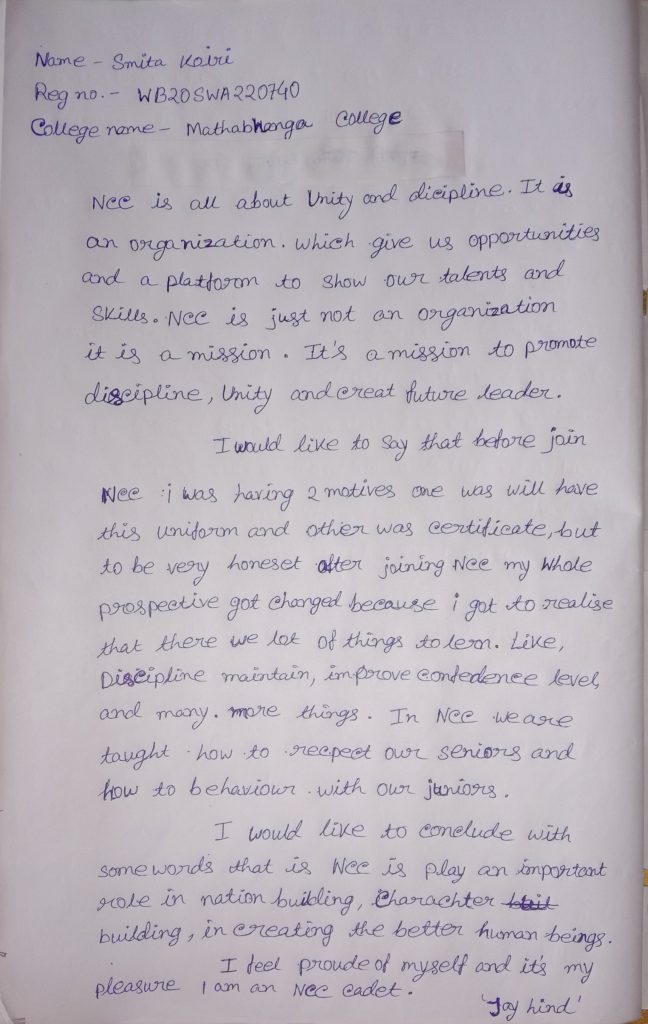 Name - Smita Koiri
Reg no. - WB20SWA220740
College name - Mathabhanga College
NCC is all about Unity and dicipline. It is
an organization. which give us opportunities
and a platform to show our talents and
Skills. NCC is just not an organization
it is a mission. It's a mission to promote
discipline, Unity and creat future leader.
I would like to say that before join
NCC i was having 2 motives one was will have
this uniform and other was certificate, but
to be very honeset after joining NCC my whole
prospective got changed because i got to realise
that there we lot of things to lern. Like,
Discipline maintain, improve confedence level,
and many. more things. In NCC we are
taught how to recpect our seniors and
how to behaviour with our juniors.
I would like to conclude with
some words that is NCC is play an important
role in nation building, Charachter
building, in creating the better human beings.
I feel proude of myself and it's my
pleasure I am an NCC cadet.
'Jay hind'